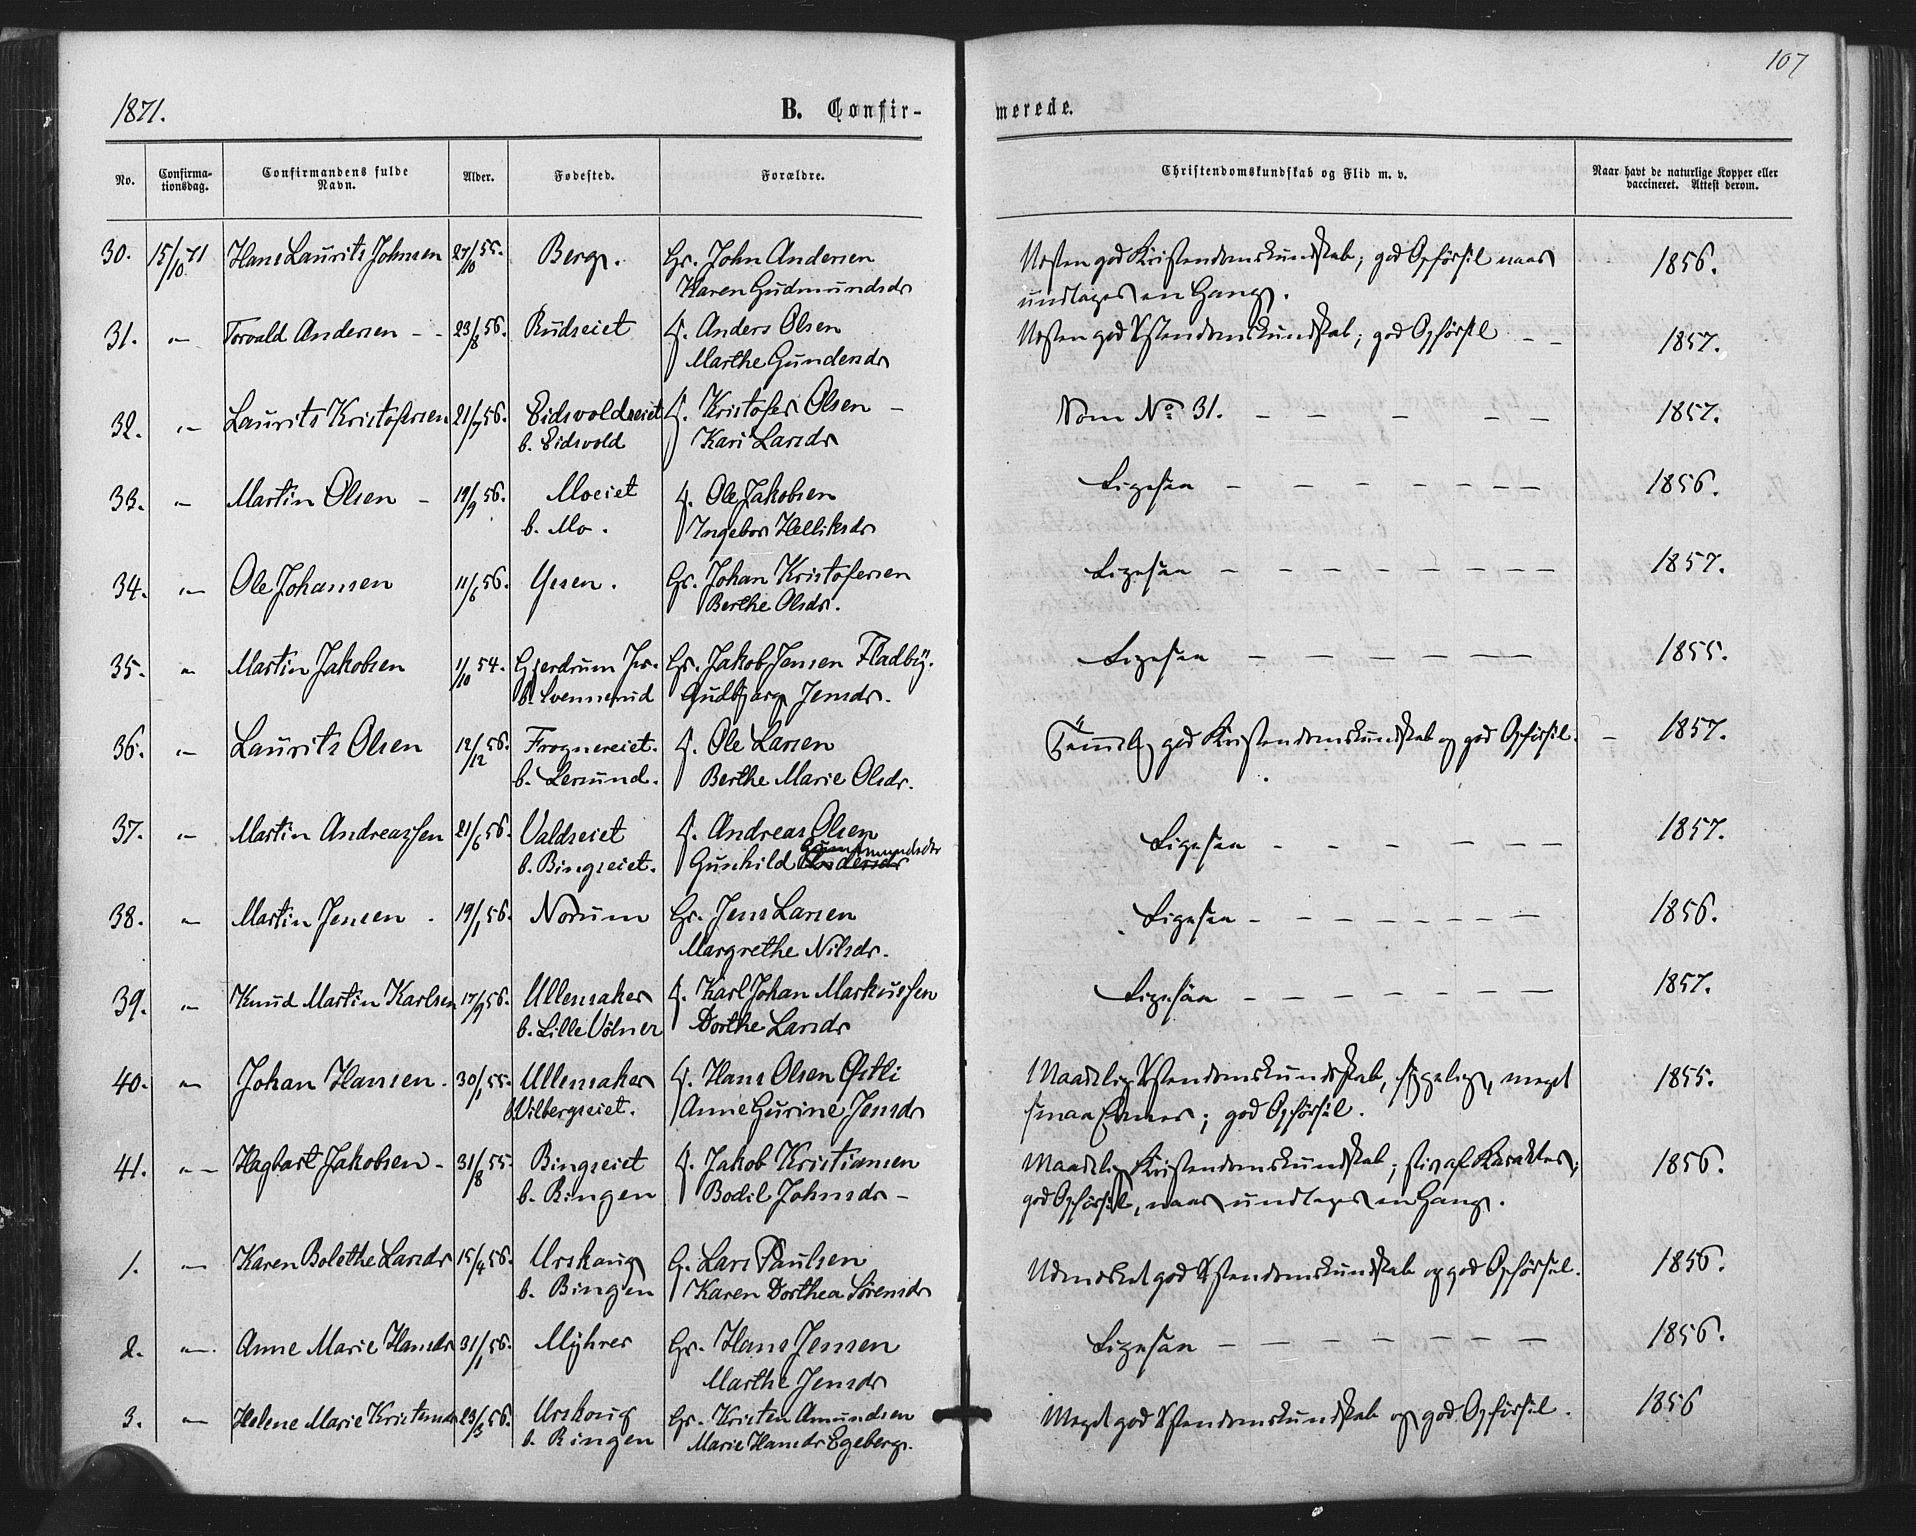 107
1871.
B. Confir-
merede.
No.
Confirma-
tionsdag.
Confirmandens fulde
Navn.
Alder.
Fødested.
Forældre.
Christendomskundskab og Flid m. v.
Naar havt de naturlige Kopper eller
vaccineret. Attest derom.
30. 15/10 71 Hans Laurits Johnsen 27/10 55. Berg. Gr. John Andersen Nesten god Kristendomskundskab; god Opførsel naar 1856.
Karen Gudmundsdr undtages en Gang.
31. " Torvald Andersen - - 23/8 56. Rudseiet Anders Olsen Nesten god Xstendomskundskab; god Opførsel - - 1857.
Marthe Gundersdr
32. " Laurits Kristofersen 21/7 56. Eidsvoldseiet Kristofer Olsen - Som No 31. - - - - - 1857.
b. Eidsvold Kari Larsdr
33. " Martin Olsen - 19/9 56. Moeiet Ole Jakobsen Ligesaa - - - - - - - 1856.
b. Mo. Ingebor Helliksdr
34. " Ole Johansen 11/6 56. Gr. Johan Kristofersen Ligesaa - - - - - - - - 1857.
Berthe Olsdr.
35. " Martin Jakobsen 1/10 54. Gjerdrum Pr. Gr. Jakob Jensen Fladby. Ligesaa - - - - - - 1855.
b. Svennerud Gudbjørg Jensdr.
36. " Laurits Olsen 12/12 56. Frognereiet. Ole Larsen Temmelig god Kristendomskundskab og god Opførsel. - 1857.
b. Lersund. Berthe Marie Olsdr.
37. " Martin Andreassen 21/6 56. Valdseiet Andreas Olsen Ligesaa - - - - - - 1857.
b. Bingseiet. Gunhild Gudmundsdr
38. " Martin Jensen. 19/1 56. Norum Gr. Jens Larsen Ligesaa - - - - - - - - 1856.
Margrethe Nilsdr.
39. " Knud Martin Karlsen 17/9 56. Ullensaker Karl Johan Markussen Ligesaa - - - - - - - 1857.
b. Lille Vølner Dorthe Larsdr
40. " Johan Hansen. 30/1 55. Ullensaker Hans Olsen Østli Maadelig Xstendomskundskab, sygelig, meget 1855.
b. Vilbergseiet. Anne Gurine Jensdr smaa Evner; god Opførsel.
41. " Hagbart Jakobsen - 31/8 55. Bingseiet Jakob Kristiansen Maadelig Kristendomskundskab; stiv af Karakter; 1856.
b. Bingen Bodil Johnsdr - god Opførsel, naar undtages en Gang.
1. " Karen Bolethe Larsdr 15/4 56. Urskoug G. Lars Paulsen Udmerket god Xstendomskundskab og god Opførsel. 1856.
b. Bingen Karen Dorthea Sørensdr
2. " Anne Marie Hansdr 31/1 56. Myhrer Gr. Hans Jensen Ligesaa - - - - - - - 1856.
Marthe Jensdr
3. " Helene Marie Kristensdr 23/3 56. Urskoug Gr. Kristen Amundsen Meget god Xstendomskundskab og god Opførsel. 1856
b. Bingen Marie Hansdr Egeberg.